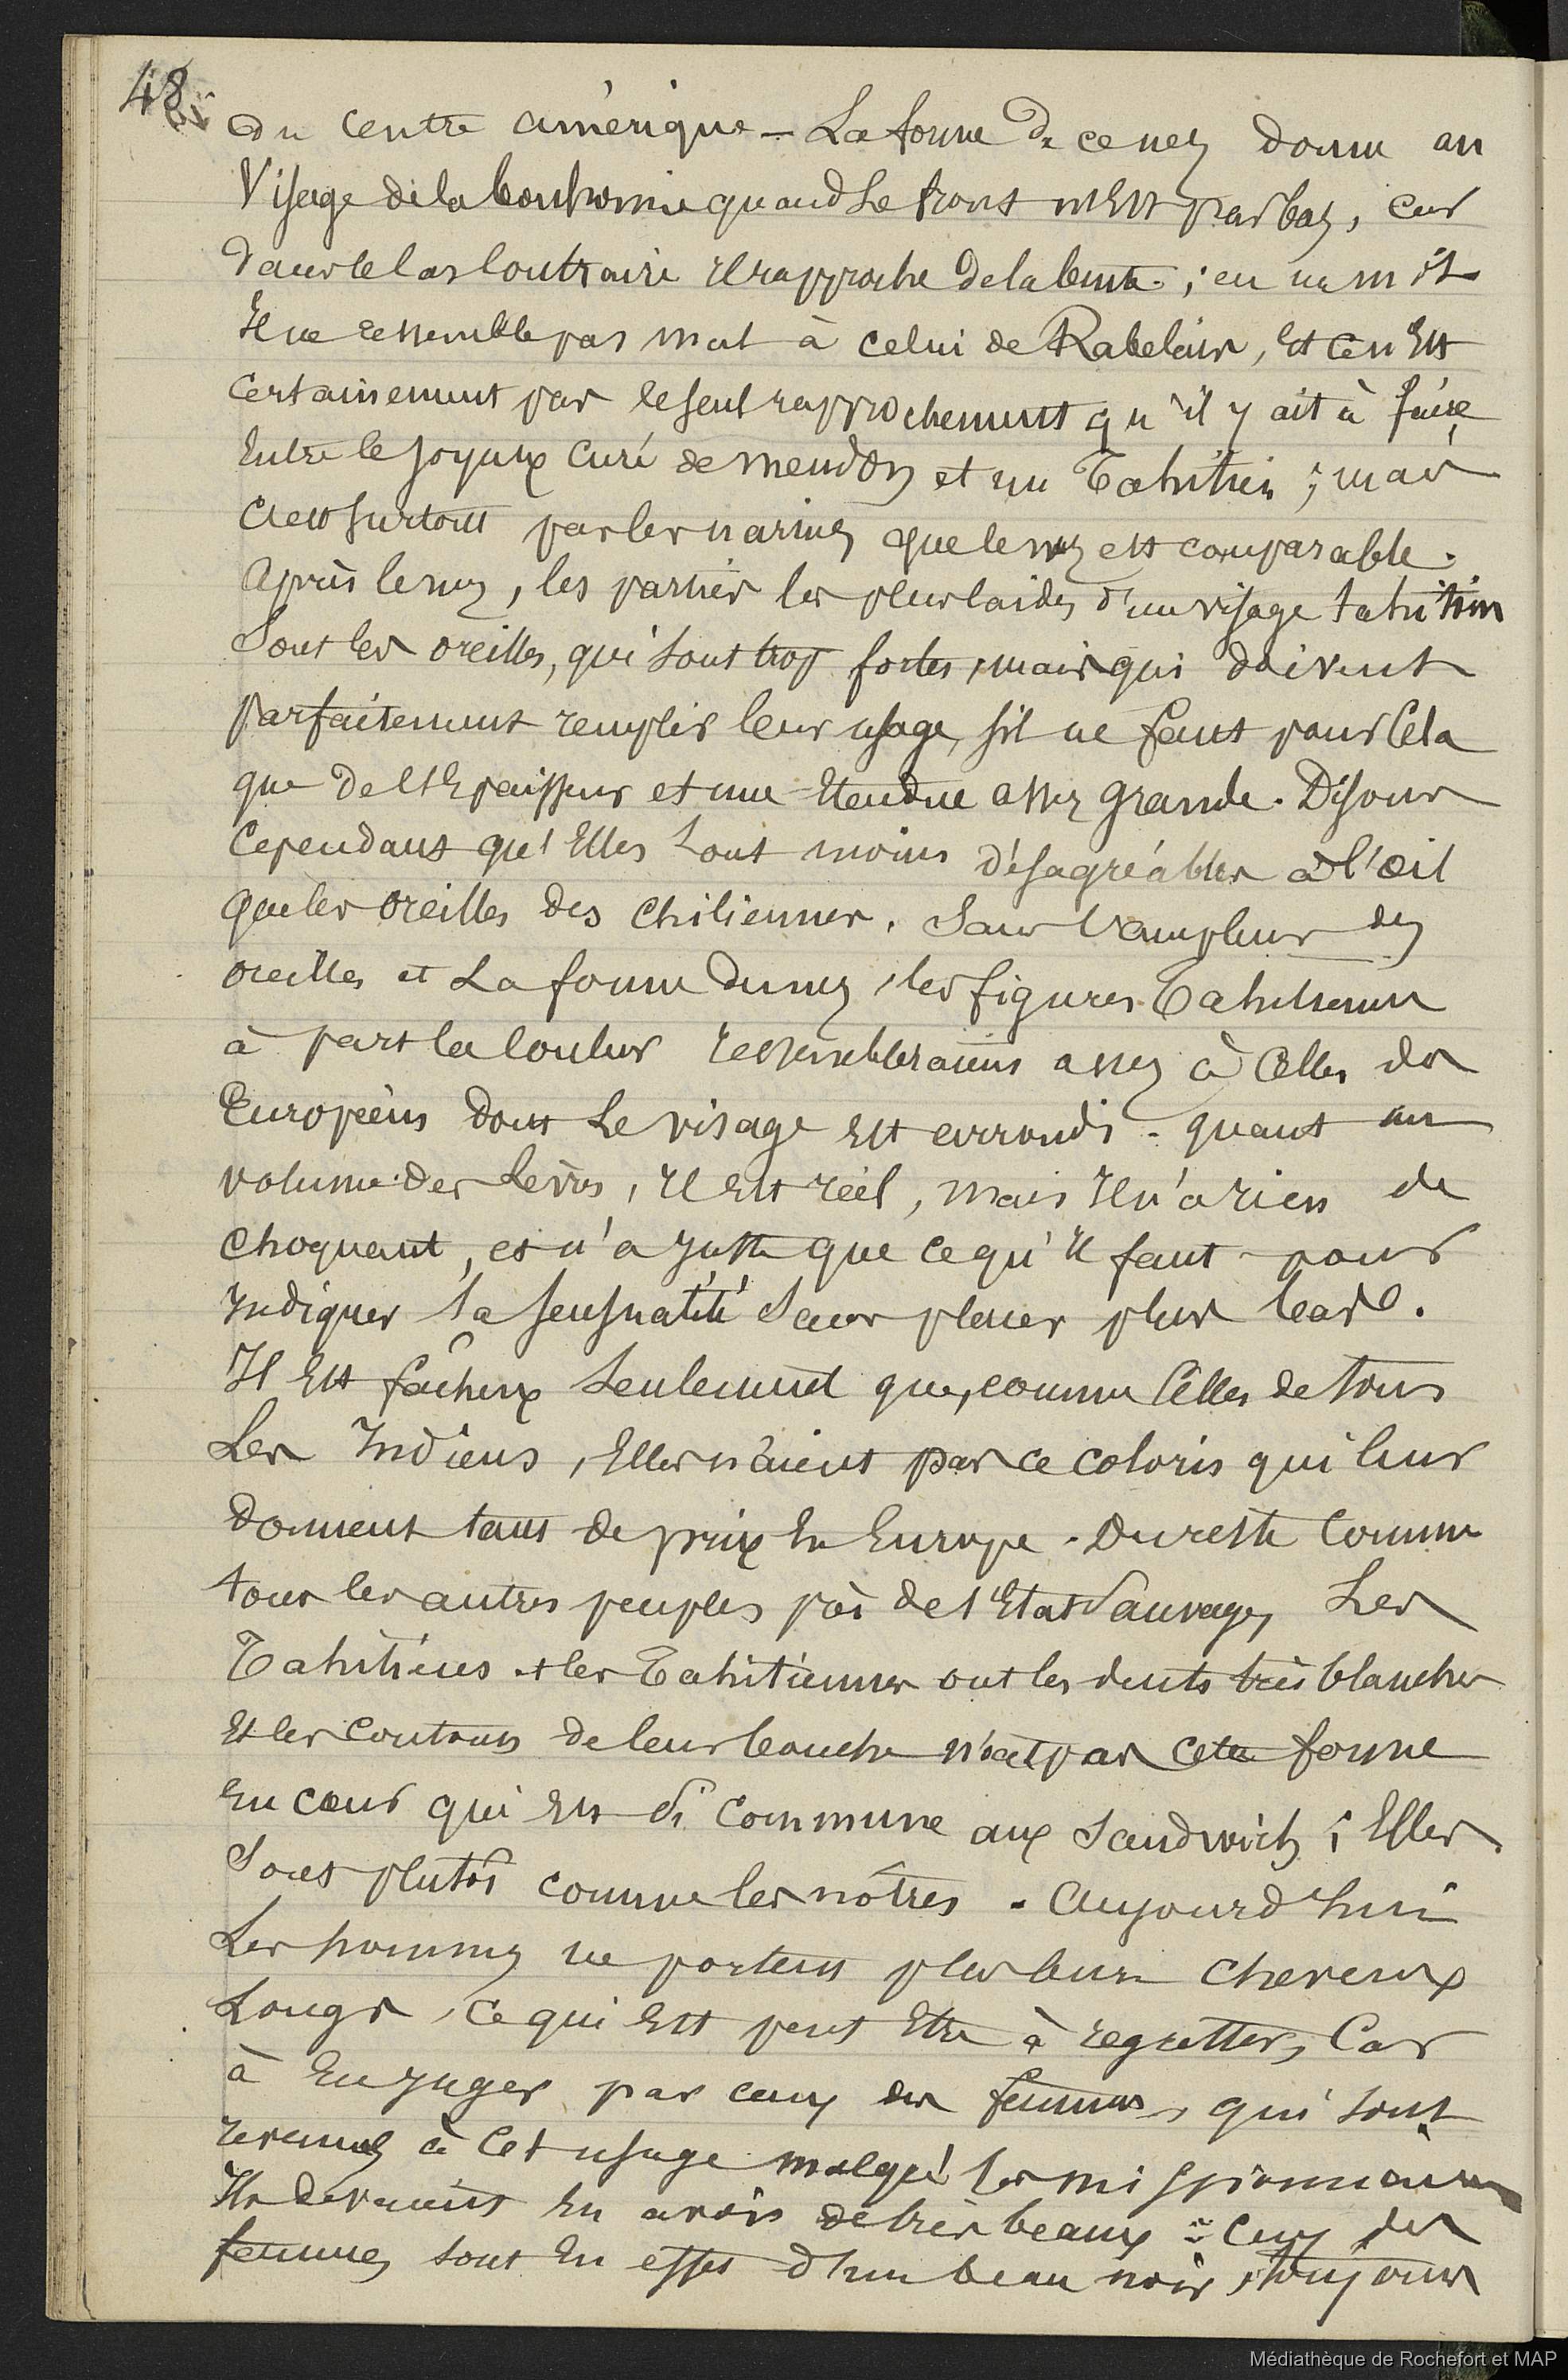 48 bis
du Centre amérique – La forme de ce nez donne au
Visage de la bonhomie quand Le front n'Est pas bas, car
dans le Cas Contraire Il rapproche de la brute ; en un mot
Il ne ressemble pas mal à celui de Rabelais, Et Ce n'Est
Certainement pas le seul rapprochement qu'il y ait à faire
Entre le Joyeux Curé de meudon et un Tahitien ; mais
C'est surtout par les narines que le nez est comparable.
Après le nez, les parties les plus laides d'un visage tahitien
Sont les oreilles, qui sont trop fortes, mais qui doivent
parfaitement remplir leur usage, s'il ne faut pour Cela
que de l'Epaisseur et une Etendue assez grande. Disons
Cependant qu'Elles sont moins désagréables à l'œil
que les oreilles des Chiliennes. Sans l'ampleur des
oreilles et La forme du nez, les figures Tahitiennes
à part la Couleur ressembleraient assez à Celles des
Européens dont Le visage Est arrondi. quant au
volume des Lèvres, Il Est réel, mais Il n'a rien de
Choquant, et n'a Juste que ce qu'Il faut pour
Indiquer la sensualité Sans placer plus bas.
Il Est fâcheux Seulement que, comme Celles de tous
Les Indiens, Elles n'aient pas ce coloris qui leur
donnent tant de prix En Europe. Du reste Comme
tous les autres peuples près de l'Etat Sauvage, Les
Tahitiens et les Tahitiennes ont les dents très blanches
Et les Contours de leur bouche n'ont pas cette forme
En cœur qui Est si Commune aux Sandwich ; Elles
Sont plutôt comme les nôtres. Aujourd'hui
Les hommes ne portent plus leurs cheveux
Longs, Ce qui Est peut Etre à regretter, Car
à En Juger par ceux des femmes, qui sont
revenues à Cet usage malgré les missionnaires
Ils devraient En avoir de très beaux : Ceux des
femmes sont En effet d'un beau noir, toujours
Médiathèque de Rochefort et MAP